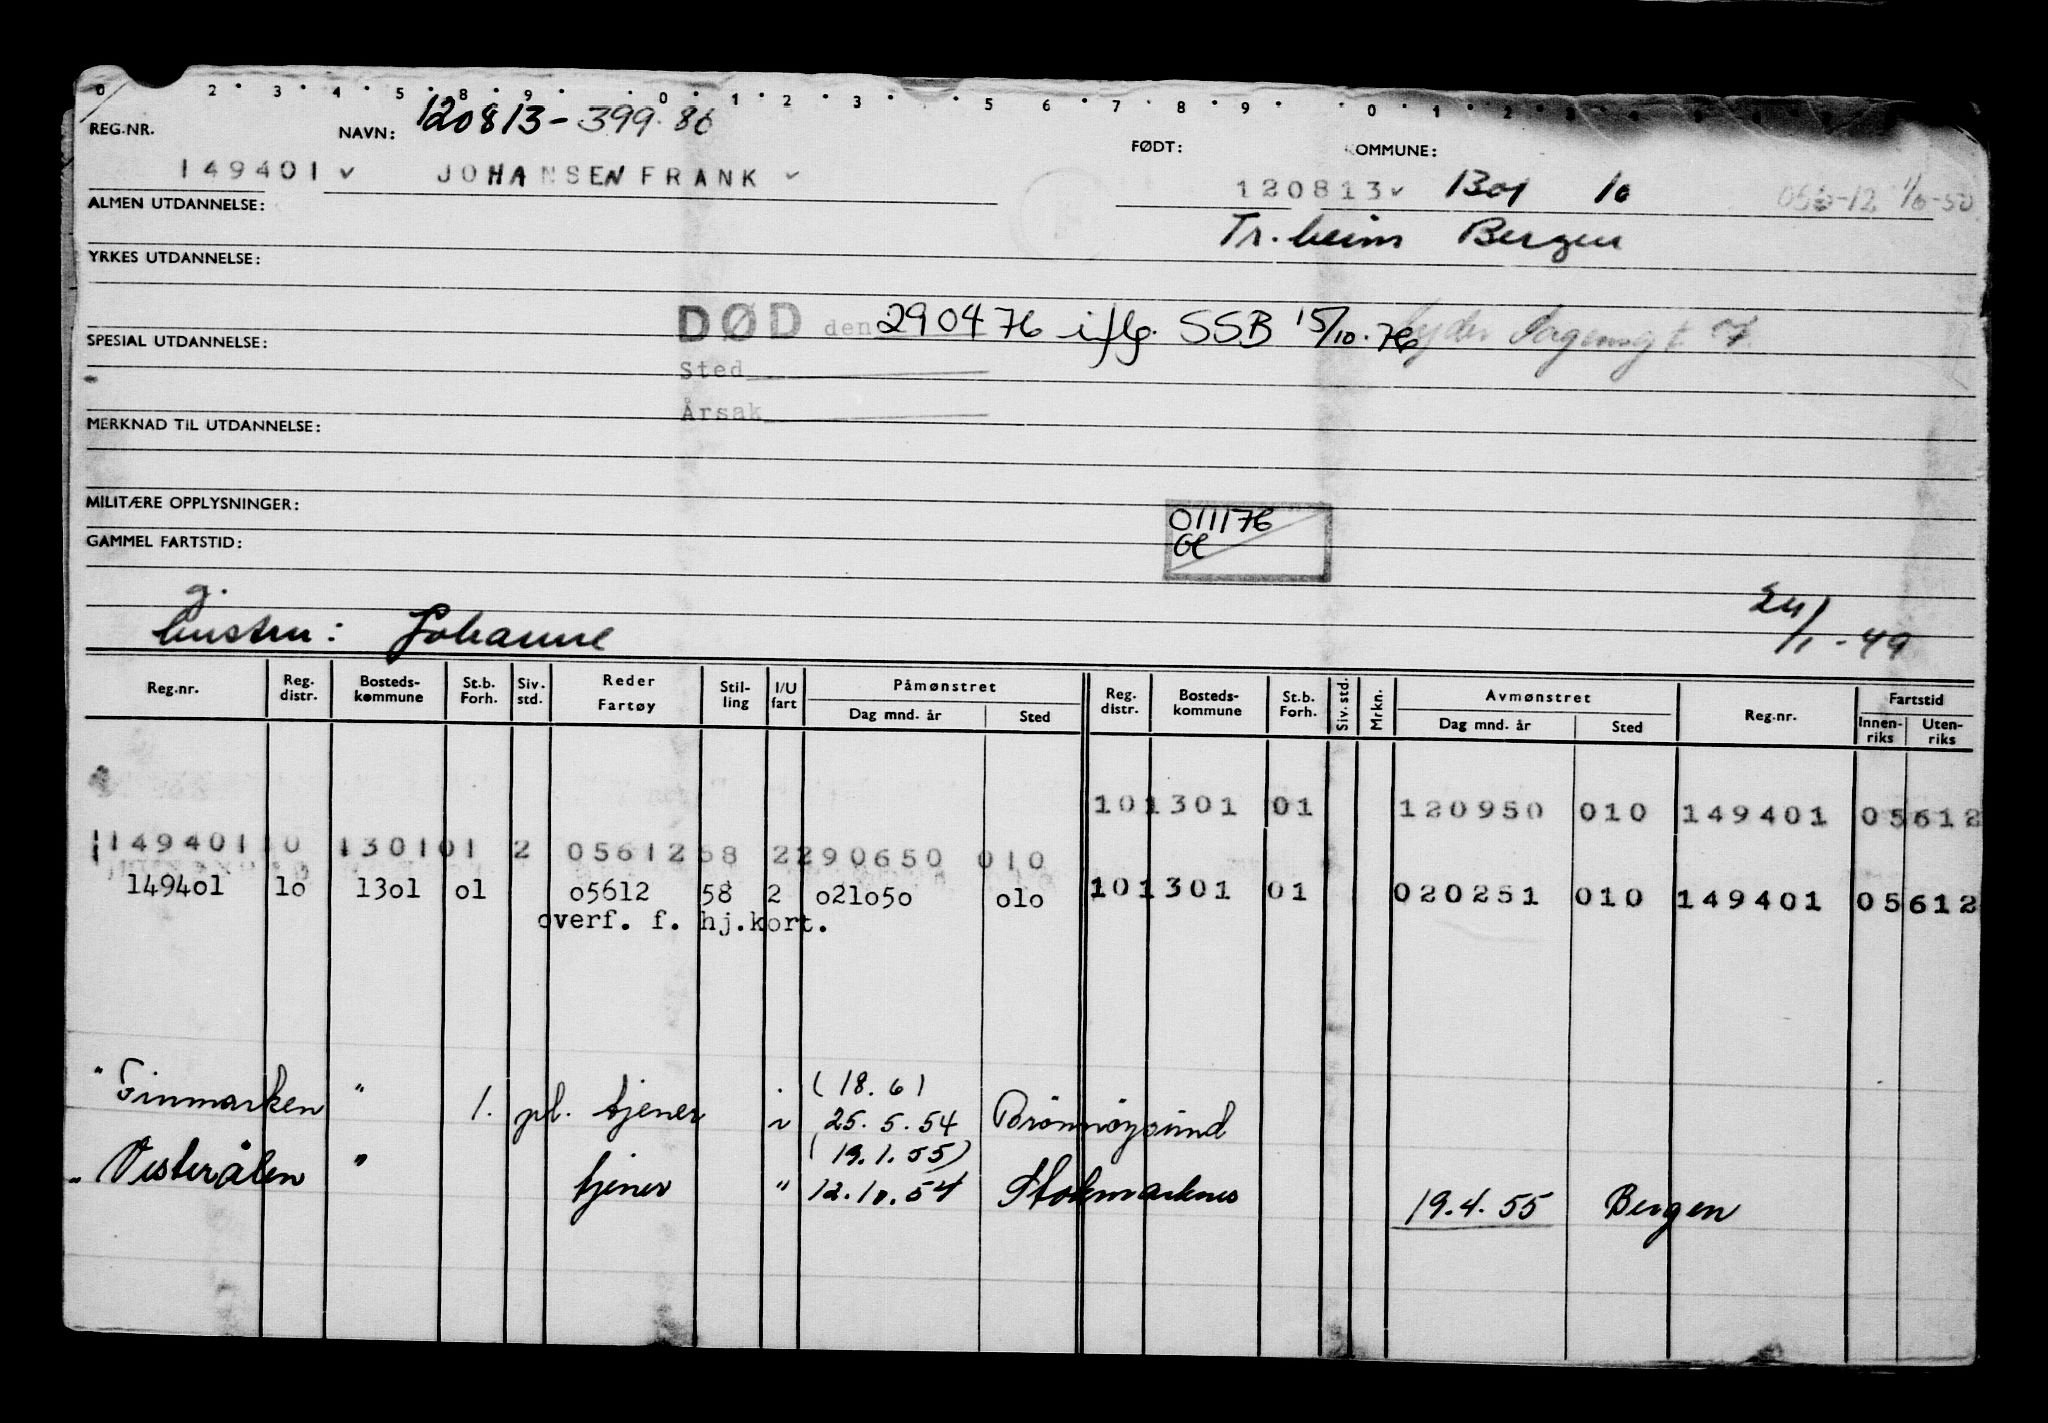 0 2 3 4 5 8 9 0 1 2 3 5 6 7 8 9 0 1 2
120813-399.86
REG.NR. NAVN: FØDT: KOMMUNE:
149401 v JOHANSEN FRANK v 120813 v 1301 10 1/6-50
ALMEN UTDANNELSE: Tr.heim Bergen
YRKES UTDANNELSE:
DØD den 290476 iflg. SSB 15/10.76
SPESIAL UTDANNELSE:
Sted
Årsak
MERKNAD TIL UTDANNELSE:
MILITÆRE OPPLYSNINGER: 011176
GAMMEL FARTSTID:
g.
hustru: Johanne 24/1-49
Reg.nr. Reg. distr. Bosteds-kommune St.b. Forh. Siv. std. Reder Fartøy Stil-ling I/U fart Påmønstret Dag mnd. år Sted Reg. distr. Bosteds-kommune St.b. Forh. Siv. std. Mrkn. Avmønstret Dag mnd. år Sted Reg.nr. Fartstid Innen-riks Uten-riks
101301 01 120950 010 149401 05612
149401 10 1301 01 2 05612 58 2 290650 010
149401 lo 13o1 o1 o5612 58 2 o21o5o olo 101301 01 020251 010 149401 05612
overf. f. hj.kort.
(18.6)
" Finmarken " 1. pl. tjener 25.5.54 Brønnøysund
(19.1.55)
" Vesterålen " tjener " 12.10.54 Stokmarknes 19.4.55 Bergen